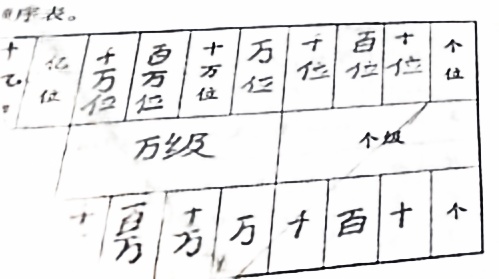 序表。
亿位 千万位 百万位 十万位 万位 千位 百位 十位 个位
万级 个级
百万 十万 万 千 百 十 个